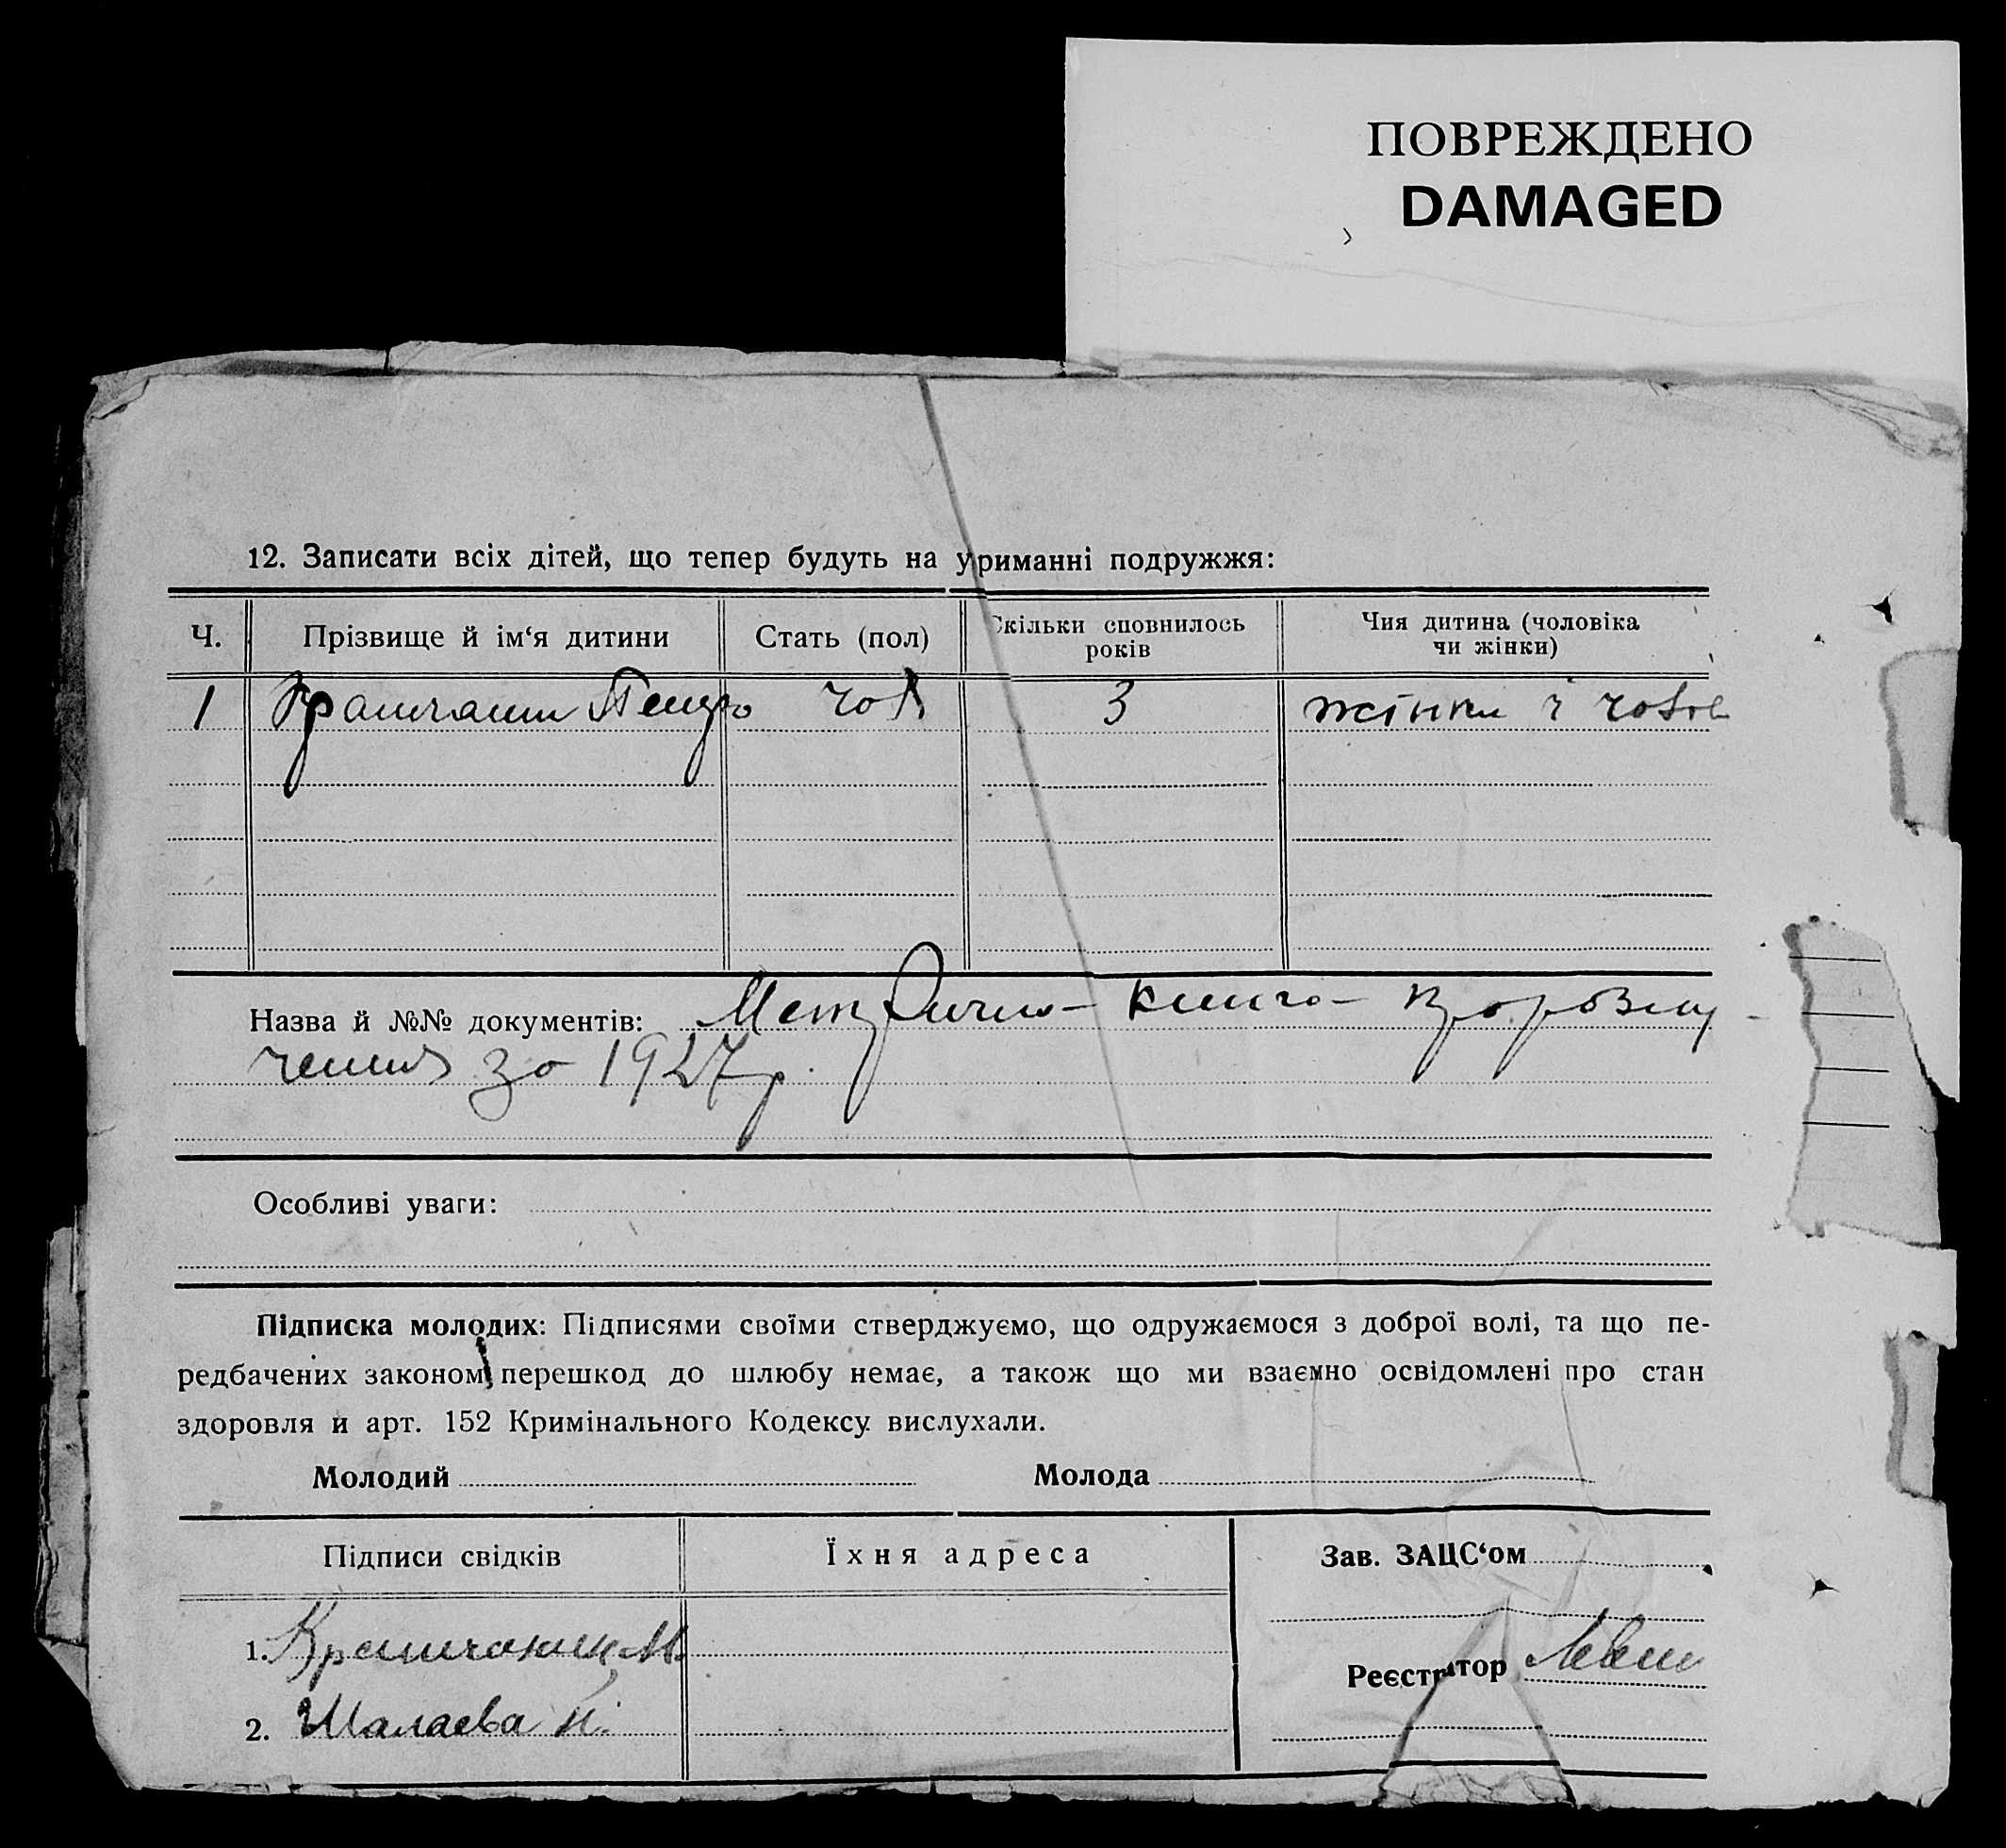 ПОВРЕЖДЕНО
DAMAGED
12. Записати всіх дітей, що тепер будуть на утриманні подружжя:
Ч. Прізвище й ім‘я дитини Стать (пол) Скільки сповнилось років Чия дитина (чоловіка чи жінки)
1 Петро чол 3 жінки і чолов
Назва й №№ документів: Метрична книга про
за 1927 р.
Особливі уваги:
Підписка молодих: Підписями своїми стверджуємо, що одружаємося з доброї волі, та що пе-
редбачених законом перешкод до шлюбу немає, а також що ми взаємно освідомлені про стан
здоровля й арт. 152 Кримінального Кодексу вислухали.
Молодий Молода
Підписи свідків Їхня адреса Зав. ЗАЦС‘ом
1.
Реєстратор
2. Шалаєва